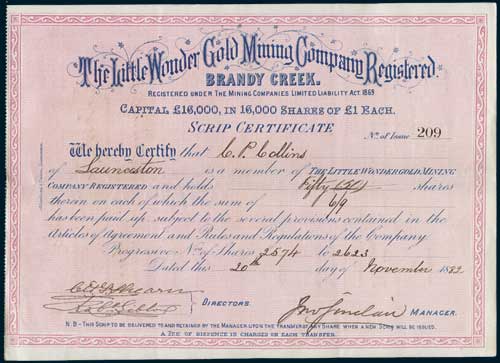 The Little Wonder Gold Mining Company Registered.
BRANDY CREEK.
REGISTERED UNDER THE MINING COMPANIES LIMITED LIABILITY ACT. 1869
CAPITAL £16,000, IN 16,000 SHARES OF £1 EACH.
SCRIP CERTIFICATE
No. of Issue 209
We hereby Certify that C. P. Collins
of Launceston is a member of THE LITTLE WONDER GOLD MINING
COMPANY REGISTERED and holds Fifty (50) shares
thereon on each of which the sum of 6/9
has been paid up subject to the several provisions contained in the
Articles of Agreement and Rules and Regulations of the Company.
Progressive Nos. of Shares 2574 to 2623
Dated this 20th day of November 1882
DIRECTORS.
Jno Sinclair MANAGER.
N.B - THIS SCRIP TO BE DELIVERED TO AND RETAINED BY THE MANAGER UPON THE TRANSFER OF ANY SHARE WHEN A NEW SCRIP WILL BE ISSUED.
A FEE OF SIXPENCE IS CHARGED ON EACH TRANSFER.